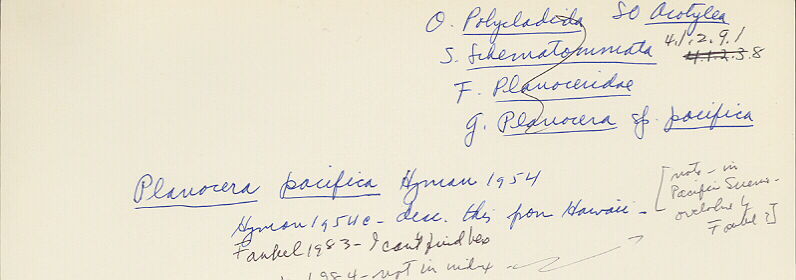 O. Polycladida SO Acotylea
S. Schematommata 4.1.2.9.1
4.1.2.3.8
F. Planoceridae
g. Planocera sp. pacifica
Planocera pacifica Hyman 1954
Hyman 1954c - desc. this from Hawaii -
[note - in
Pacific Science -
overlooked by
Faubel?]
Faubel 1983 - I can't find
1984 - not in index